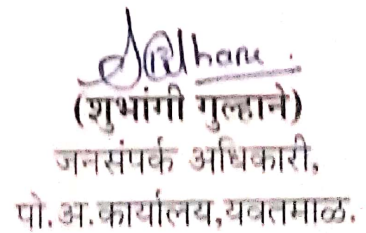 (शुभांगी गुल्हाने)
जनसंपर्क अधिकारी,
पो.अ.कार्यालय,यवतमाळ.